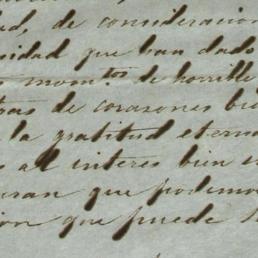 ud, de consideracion
nidad que han dado
mom.tos de horrible
bas de corazones bie
la gratitud etern
s al interes bien
uran que podemo
ion que puede